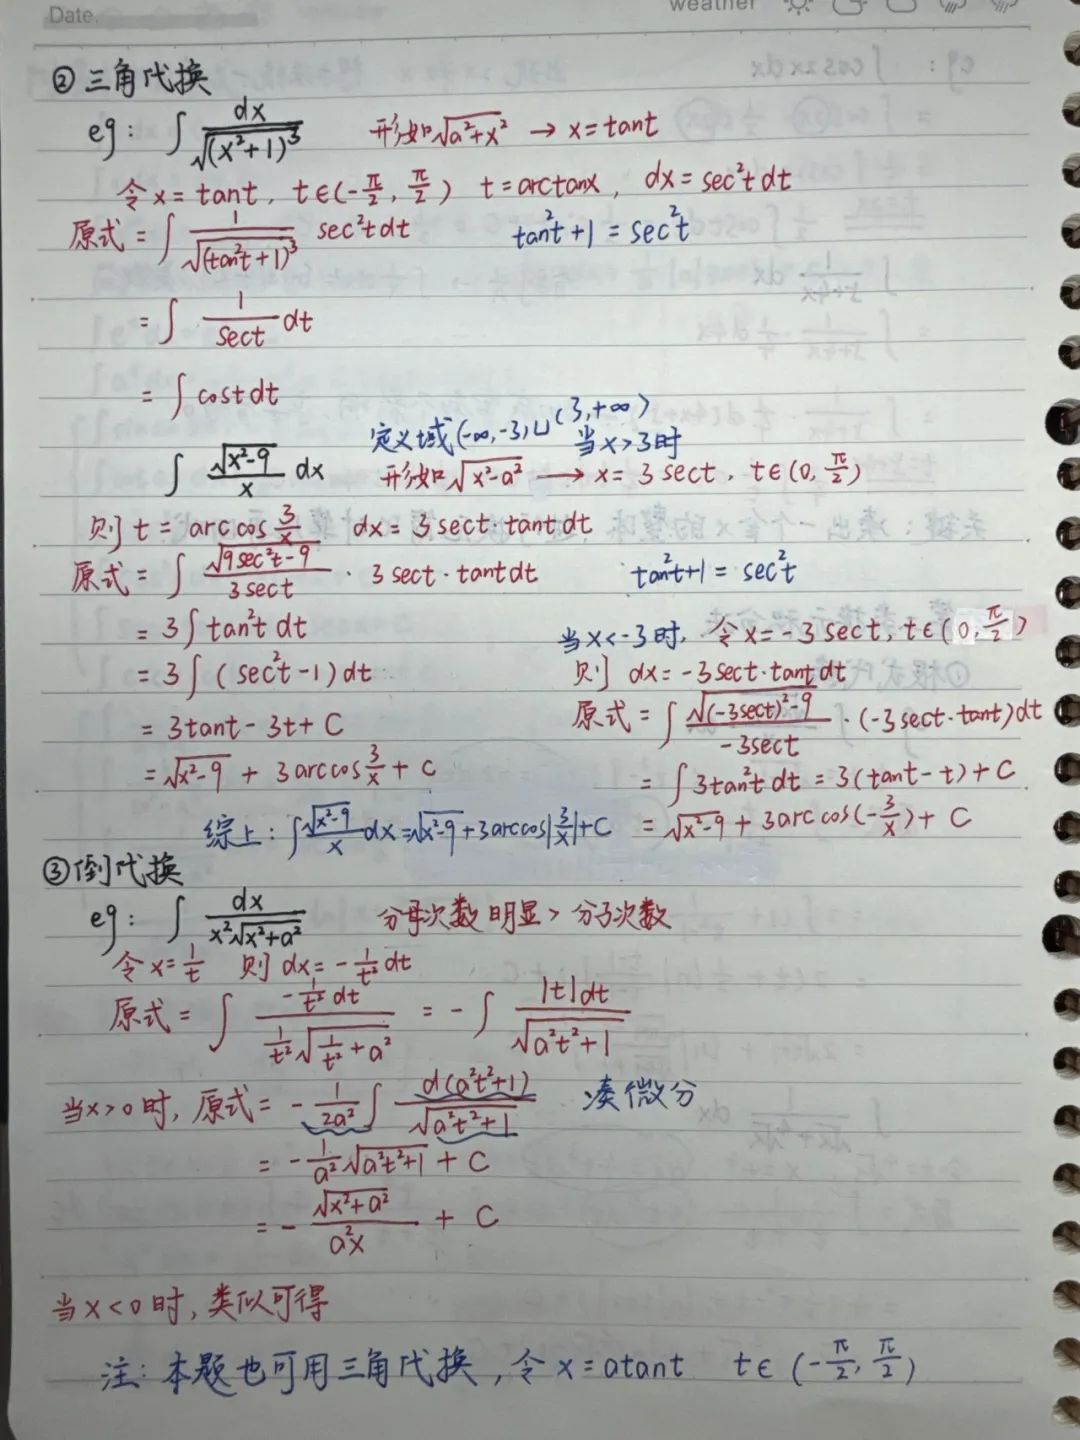 Date.
weather
② 三角代换
eg: ∫ dx/√(x²+1)³ 形如√a²+x² → x=tant
令x=tant, t∈(-π/2, π/2) t=arctanx, dx=sec²tdt
原式 = ∫ 1/√(tan²t+1)³ sec²tdt tan²t+1 = sec²t
= ∫ 1/sect dt
= ∫ costdt
定义域(-∞,-3)∪(3,+∞)
当x>3时
∫ √x²-9/x dx 形如√x²-a² → x= 3sect, t∈(0, π/2)
则 t = arccos 3/x dx= 3sect·tantdt
原式 = ∫ √9sec²t-9/3sect · 3sect·tantdt tan²t+1 = sec²t
= 3∫tan²t dt
= 3∫(sec²t-1)dt
= 3tant-3t+C
= √x²-9 + 3arccos 3/x + C
当x<-3时, 令x=-3sect, t∈(0, π/2)
则 dx=-3sect·tantdt
原式 = ∫ √(-3sect)²-9/-3sect ·(-3sect·tant)dt
= ∫3tan²t dt = 3(tant-t)+C
= √x²-9 + 3arccos(-3/x)+ C
综上: ∫ √x²-9/x dx=√x²-9+3arccos|3/x|+C
③倒代换
eg: ∫ dx/x²√x²+a² 分母次数明显> 分子次数
令x=1/t 则dx=-1/t² dt
原式 = ∫ -1/t² dt / 1/t² √1/t²+a² = -∫ |t|dt/√a²t²+1
当x>0时, 原式= -1/2a² ∫ d(a²t²+1)/√a²t²+1 凑微分
= -1/a² √a²t²+1 + C
= - √x²+a²/a²x + C
当x<0时, 类似可得
注: 本题也可用三角代换, 令x=atant t∈(-π/2, π/2)